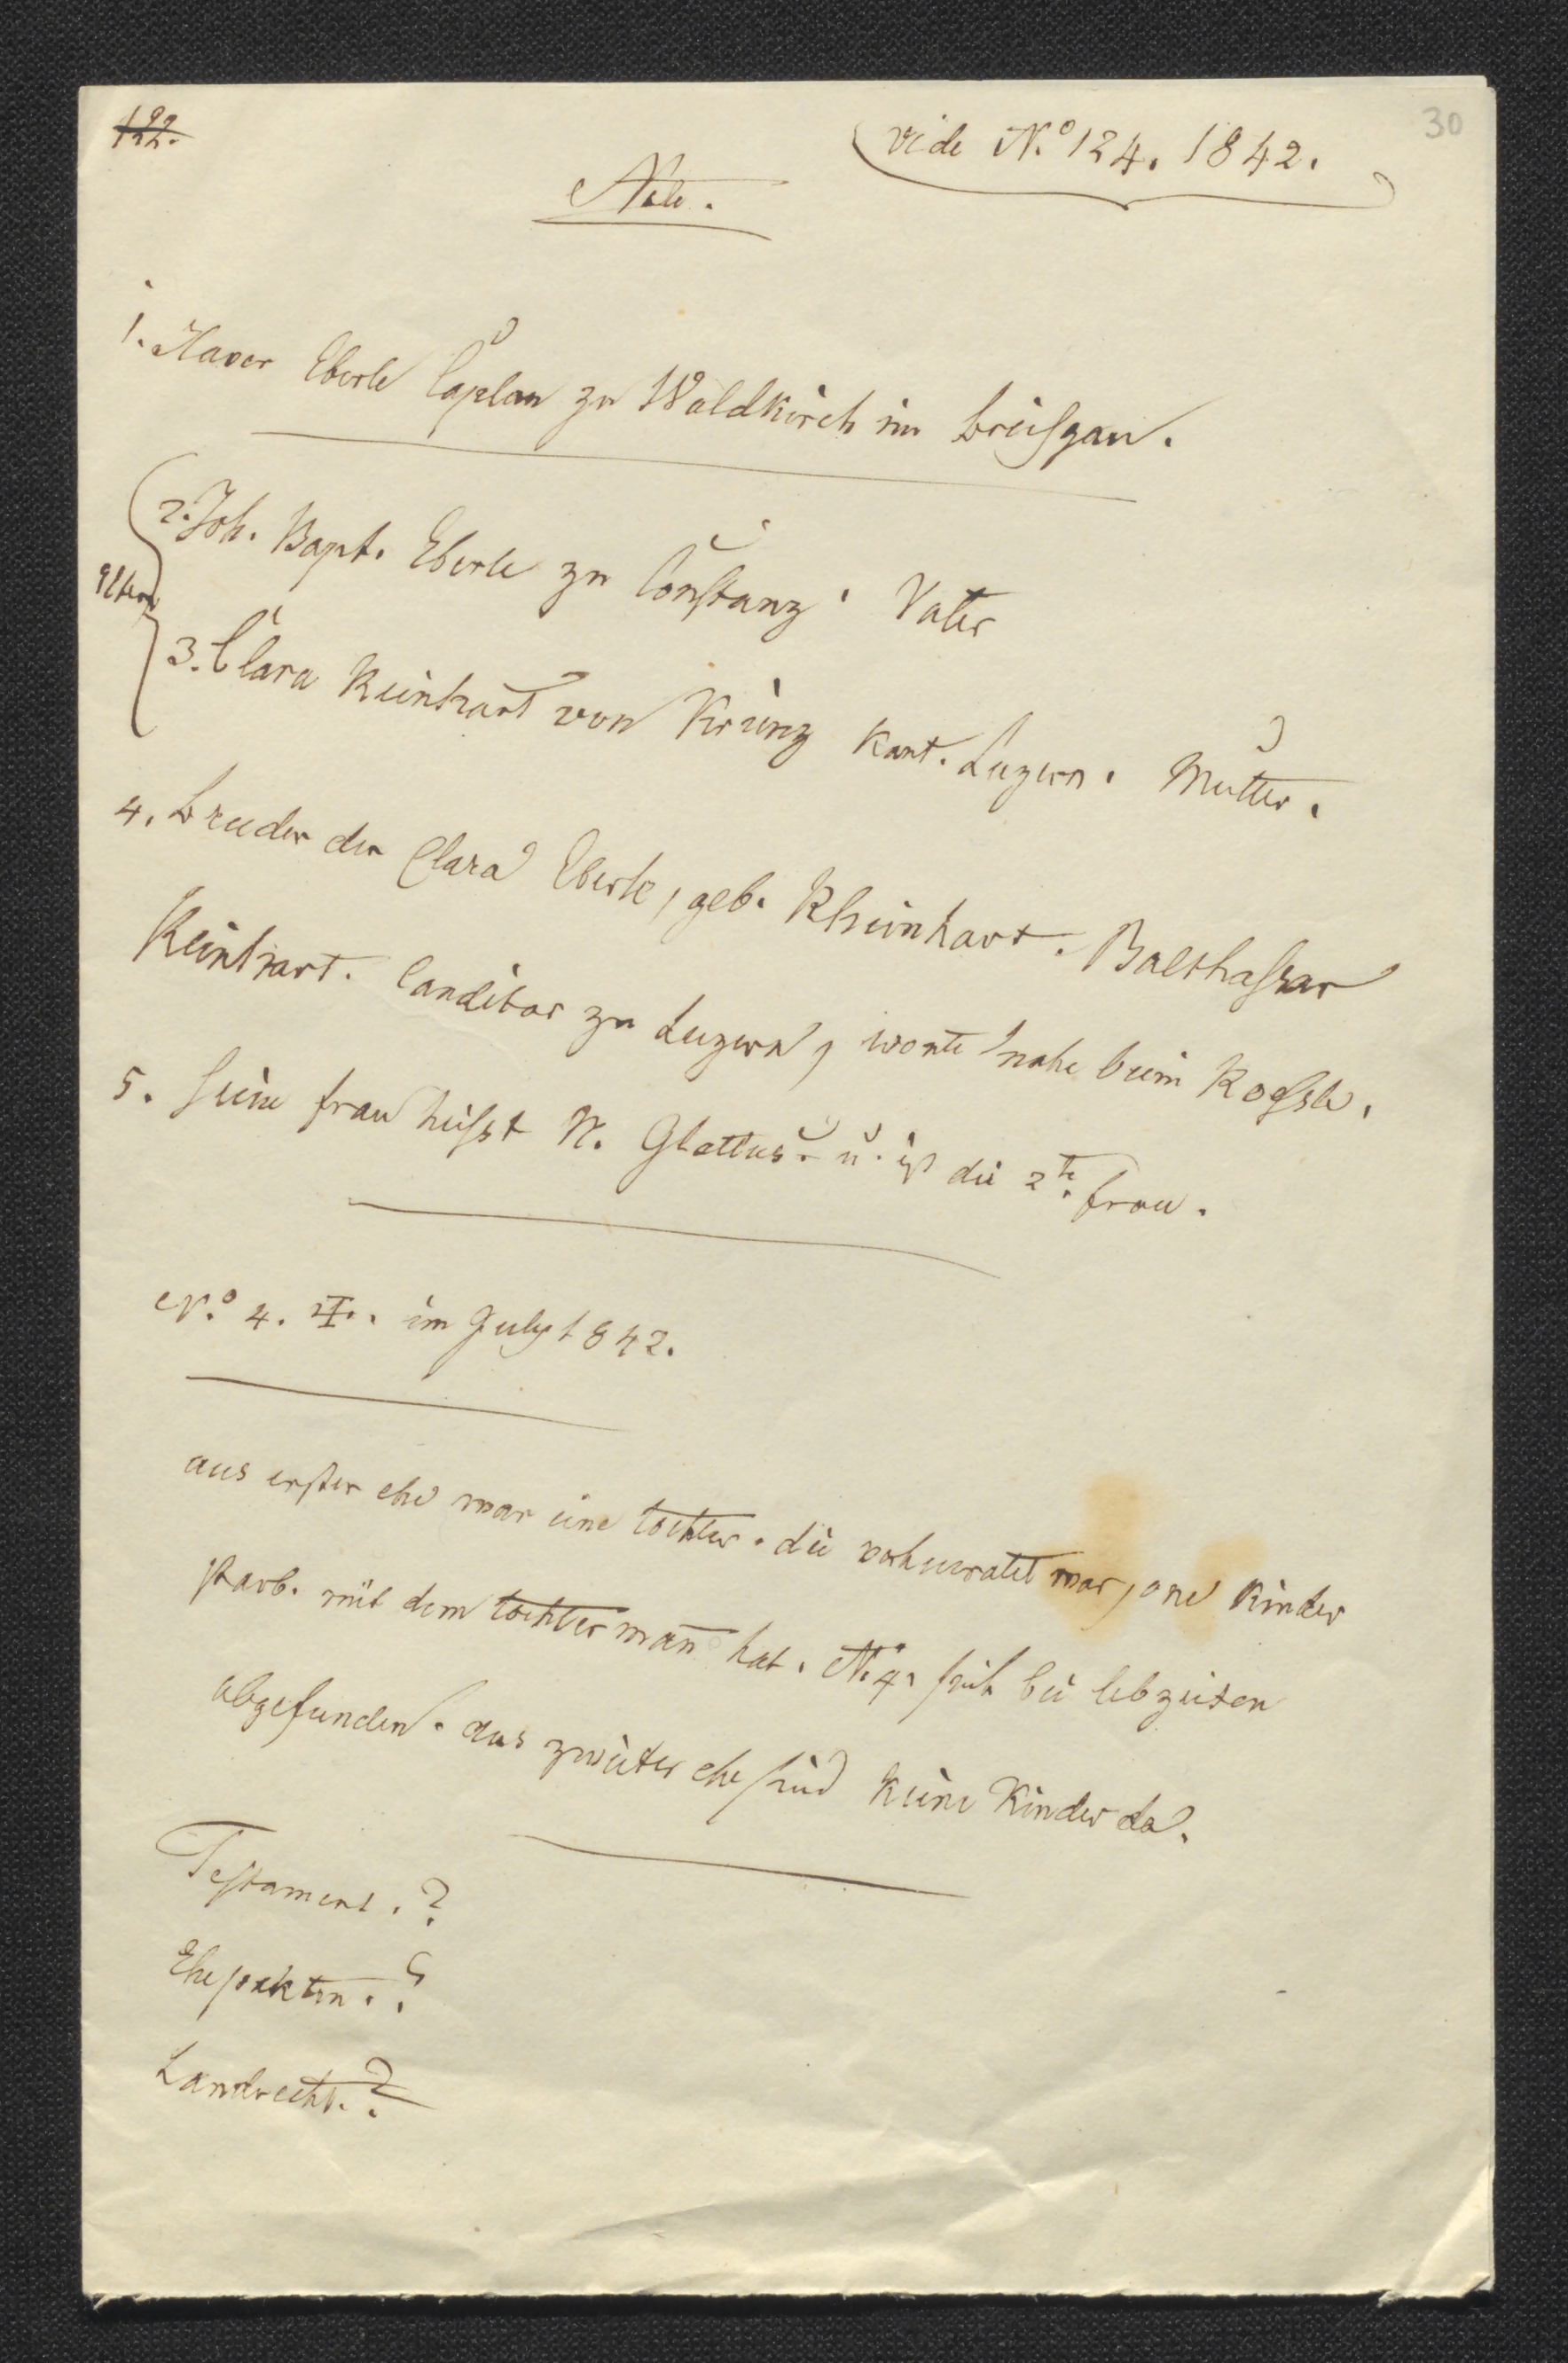 122.
vide N.º 124. 1842.
30
Note.
1. Xaver Eberle Caplan zu Waldkirch im breisgau.
2. Joh. Bapt. Eberle zu Constanz. Vater
Eltern
3. Clara Reinhart von Krienz Kant. Luzern. Mutter.
4. bruder der Clara Eberle, geb. Rheinhart. Balthassar
Reinhart. Conditor zu Luzern, wonte nahe beim Rössle.
5. seine frau heisst N. Glettus. u. ist die 2te. frau.
N.º 4. im July 1842.
aus erster ehe war eine tochter. die verheuratet war, one kinder
starb. mit dem tochtermañ hat. N.º 4. sich bei lebzeiten
abgefunden. aus zweiter ehe sind keine Kinder da.
Testament. ?
Ehepakten. ?
Landrecht. ?